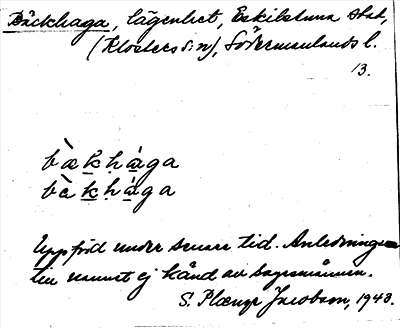 Bäckhaga, lägenhet, Eskilstuna stad,
(Klosters s:n), Södermanlands l.
13.
bæ̀k̲ḥá̲ga
bɛ̀k̲ḥá̲ga
Uppförd under senare tid. Anledningen
till namnet ej känd av sagesmännen.
S. Jacobson, 1948.